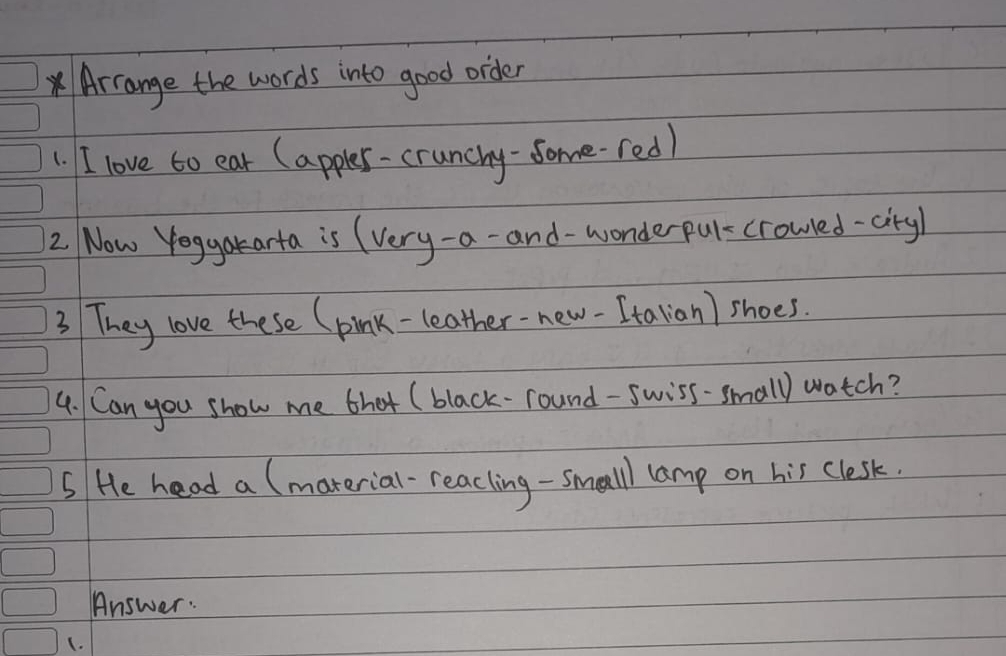 * Arrange the words into good order
1. I love to eat (apples - crunchy - some - red)
2 Now Yogyakarta is (very - a - and - wonderful - crowled - city)
3 They love these (pink - leather - new - Italian) shoes.
4. Can you show me that (black - round - swiss - small) watch?
5 He head a (material - reacling - small) lamp on his clesk.
Answer:
1.